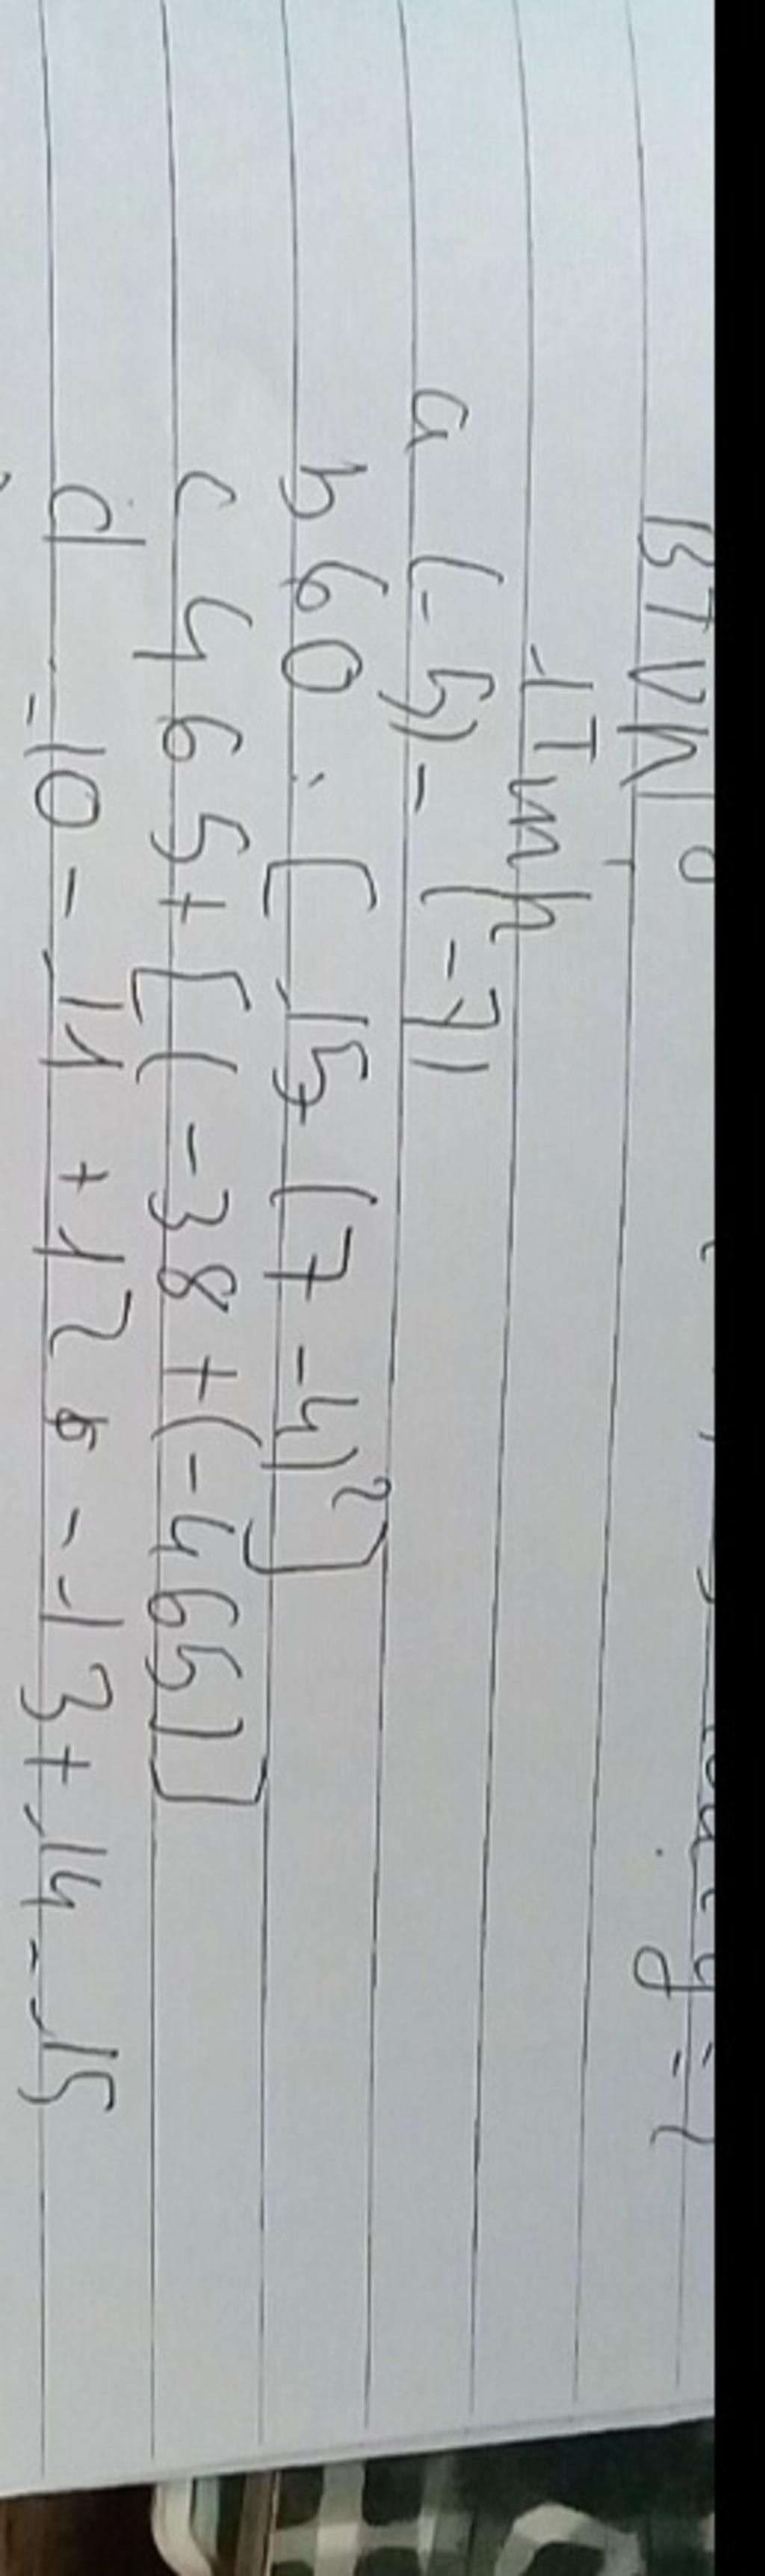 BTVN
1 Tính
a (-5) - (-7)
b 60 : [ 15 + (7 - 4)²]
c 465 + [( -38 + (-465)]
d -10 - 11 + 12 - 13 + 14 - 15